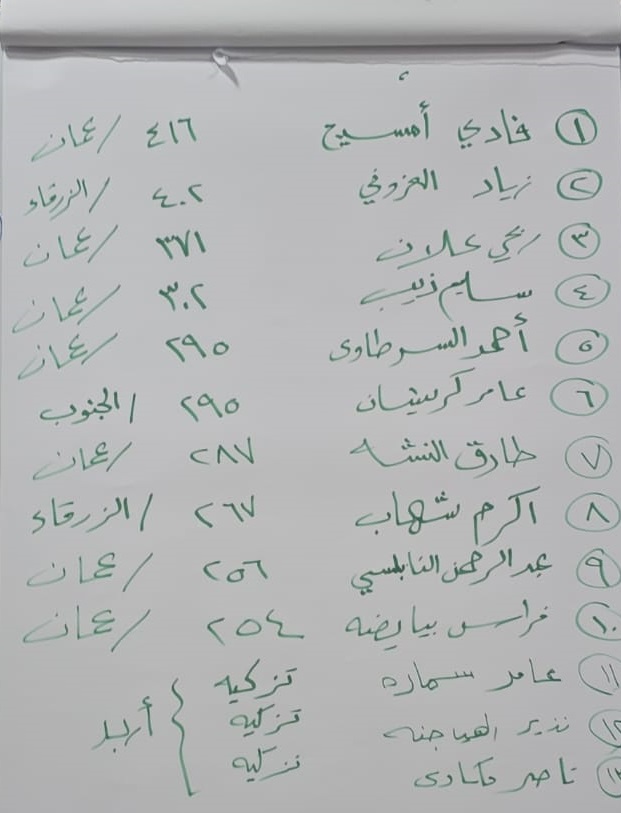 ١ فادي أمسيح ٤١٦ / عمان
٢ زياد العزوفي ٤٠٢ / الزرقاء
٣ ربحي علان ٣٧١ / عمان
٤ سليم زبيب ٣٠٢ / عمان
٥ أحمد السرطاوي ٢٩٥ / عمان
٦ عامر كريشان ٢٩٥ / الجنوب
٧ طارق النتشه ٢٨٧ / عمان
٨ اكرم شهاب ٢٦٧ / الزرقاء
٩ عبد الرحمن النابلسي ٢٥٦ / عمان
١٠ فراس بيايضه ٢٥٤ / عمان
١١ عامر سماره تزكيه
١٢ نذير الهياجنه تزكيه أربد
١٣ ناصر تزكيه